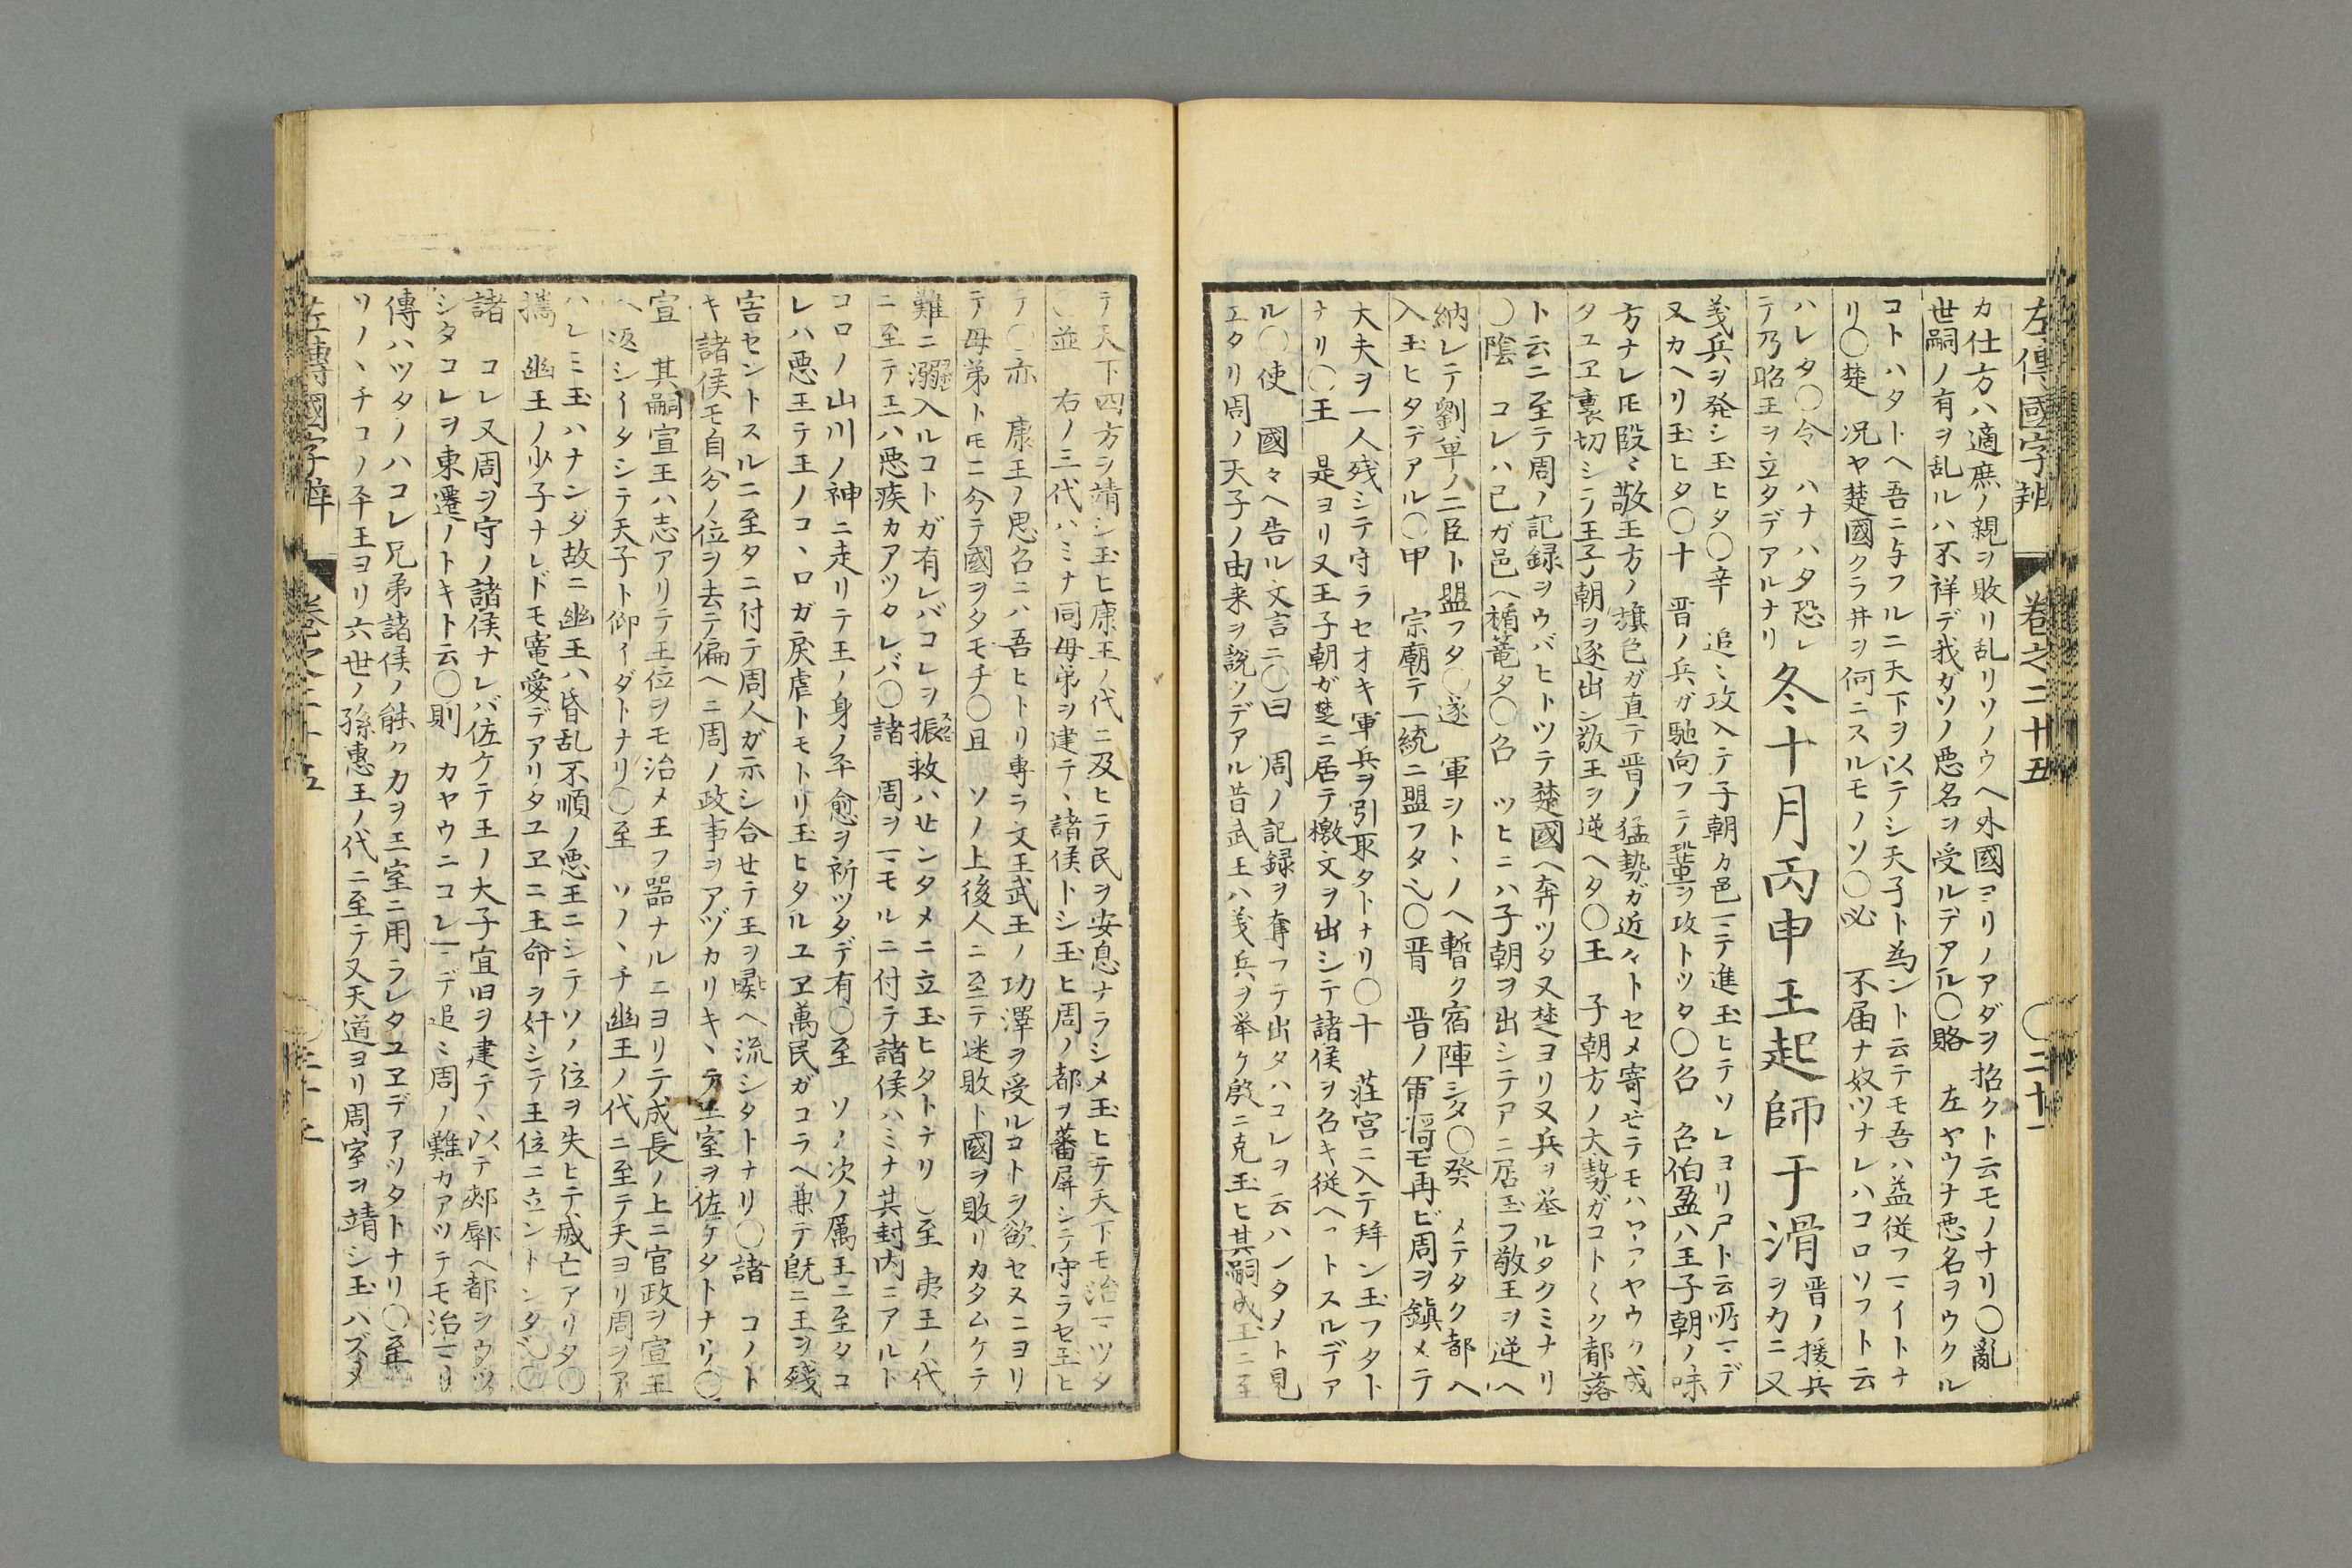 左傳國字辨 卷之二十五 〇二十一
カ仕方ハ適庶ノ親ヲ敗リ乱リソノウヘ外國ヨリノアダヲ招クト云モノナリ〇亂
世嗣ノ有ヲ乱ルハ不祥デ我ガソノ悪名ヲ受ルデアル〇賂 左ヤウナ悪名ヲウクル
コトハタトヘ吾ニ与フルニ天下ヲ以テシ天子ト為ント云テモ吾ハ益従フマイトナ
リ〇楚 况ヤ楚國クラ井ヲ何ニスルモノソ〇必 不届ナ奴ツナレハコロソフト云
ハレタ〇令 ハナハタ恐レ
テ乃昭王ヲ立タデアルナリ
冬十月丙申王起師于滑
晋ノ援兵
ヲカニ又
義兵ヲ発シ玉ヒタ〇辛 追ミ攻入テ子朝カ邑マテ進玉ヒテソレヨリ尸ト云所マデ
又カヘリ玉ヒタ〇十 晋ノ兵ガ馳向フテ鞏ヲ攻トツタ〇召 召伯盈ハ王子朝ノ味
方ナレ𪜈段ミ敬王方ノ旗色ガ直テ晋ノ猛勢ガ近々トセメ寄
タユヱ裏切シテ王子朝ヲ逐出シ敬王ヲ逆ヘタ〇王 子朝方ノ大勢ガコト〱ク都落
ト云ニ至テ周ノ記録ヲウバヒトツテ楚國ヘ奔ツタ又楚ヨリ又兵ヲ挙ルタクミナリ
〇陰 コレハ己ガ邑ヘ楯篭タ〇召 ツヒニハ子朝ヲ出シテアニ居玉フ敬王ヲ逆ヘ
納レテ劉単ノ二臣ト盟フタ〇遂 軍ヲトヽノヘ暫ク宿陣シタ〇癸 メデタク都ヘ
入玉ヒタデアル〇甲 宗廟テ一統ニ盟フタ也〇晋 晋ノ軍将モ再ビ周ヲ鎮メテ
大夫ヲ一人残シテ守ラセオキ軍兵ヲ引取タトナリ〇十 荘宮ニ入テ拜シ玉フタト
ナリ〇王 是ヨリ又王子朝ガ楚ニ居テ檄文ヲ出シテ諸侯ヲ召キ従ヘントスルデア
ル〇使 國々ヘ告ル文言ニ〇曰 周ノ記録ヲ奪フテ出タハコレヲ云ハンタメト見
エタリ周ノ天子ノ由来ヲ説ノデアル昔武王ハ義兵ヲ挙ケ殷ニ克玉ヒ其嗣成王ニ至
テ天下四方ヲ靖シ玉ヒ康王ノ代ニ及ヒテ民ヲ安息ナラシメ玉ヒテ天下モ治マツタ
〇並 右ノ三代ハミナ同母弟ヲ建テヽ諸侯トシ玉ヒ周ノ都ヲ蕃屏シテ守ラセ玉ヒ
テ〇亦 康王ノ思召ニハ吾ヒトリ専ラ文王武王ノ功澤ヲ受ルコトヲ欲セヌニヨリ
テ母弟トモニ分テ國ヲタモチ〇且 ソノ上後人ニ至テ迷敗ト國ヲ敗リカタムケテ
難ニ溺入ルコトガ有レバコレヲ振救ハセンタメニ立玉ヒタトナリ〇至 夷王ノ代
ニ至テ王ハ悪疾カアツタレバ〇諸 周ヲマモルニ付テ諸侯ハミナ其封内ニアルト
コロノ山川ノ神ニ走リテ王ノ身ノ平愈ヲ祈ツタデ有〇至 ソノ次ノ厲王ニ至タコ
レハ悪王テ王ノコヽロガ戻虐トモトリ玉ヒタルユヱ萬民ガコラヘ兼テ既ニ王ヲ残
害セントスルニ至タニ付テ周人ガ示シ合セテ王ヲ彘ヘ流シタトナリ〇諸 コノト
キ諸侯モ自分ノ位ヲ去テ偏ヘニ周ノ政事ヲアヅカリキヽテ王室ヲ佐ケタトナリ〇
宣 其嗣宣王ハ志アリテ王位ヲモ治メ玉フ器ナルニヨリテ成長ノ上ニ官政ヲ宣王
ヘ返シイタシテ天子ト仰イダトナリ〇至 ソノヽチ幽王ノ代ニ至テ天ヨリ周ヲア
ハレミ玉ハナンダ故ニ幽王ハ昏乱不順ノ悪王ニシテソノ位ヲ失ヒテ滅亡アリタ〇
攜 幽王ノ少子ナレドモ寵愛デアリタユヱニ王命ヲ奸シテ王位ニ立ントシタ也〇
諸 コレ又周ヲ守ノ諸侯ナレバ佐ケテ王ノ大子宜臼ヲ建テヽ以テ郟鄏ヘ都ヲウツ
シタコレヲ東遷ノトキト云〇則 カヤウニコレマデ追ミ周ノ難カアツテモ治マリ
傳ハツタノハコレ兄弟諸侯ノ能ク力ヲ王室ニ用ラレタユヱデアツタトナリ〇至
ソノヽチコノ平王ヨリ六世ノ孫惠王ノ代ニ至テ又天道ヨリ周室ヲ靖シ玉ハズメ
左傳國字辨 卷之二十五